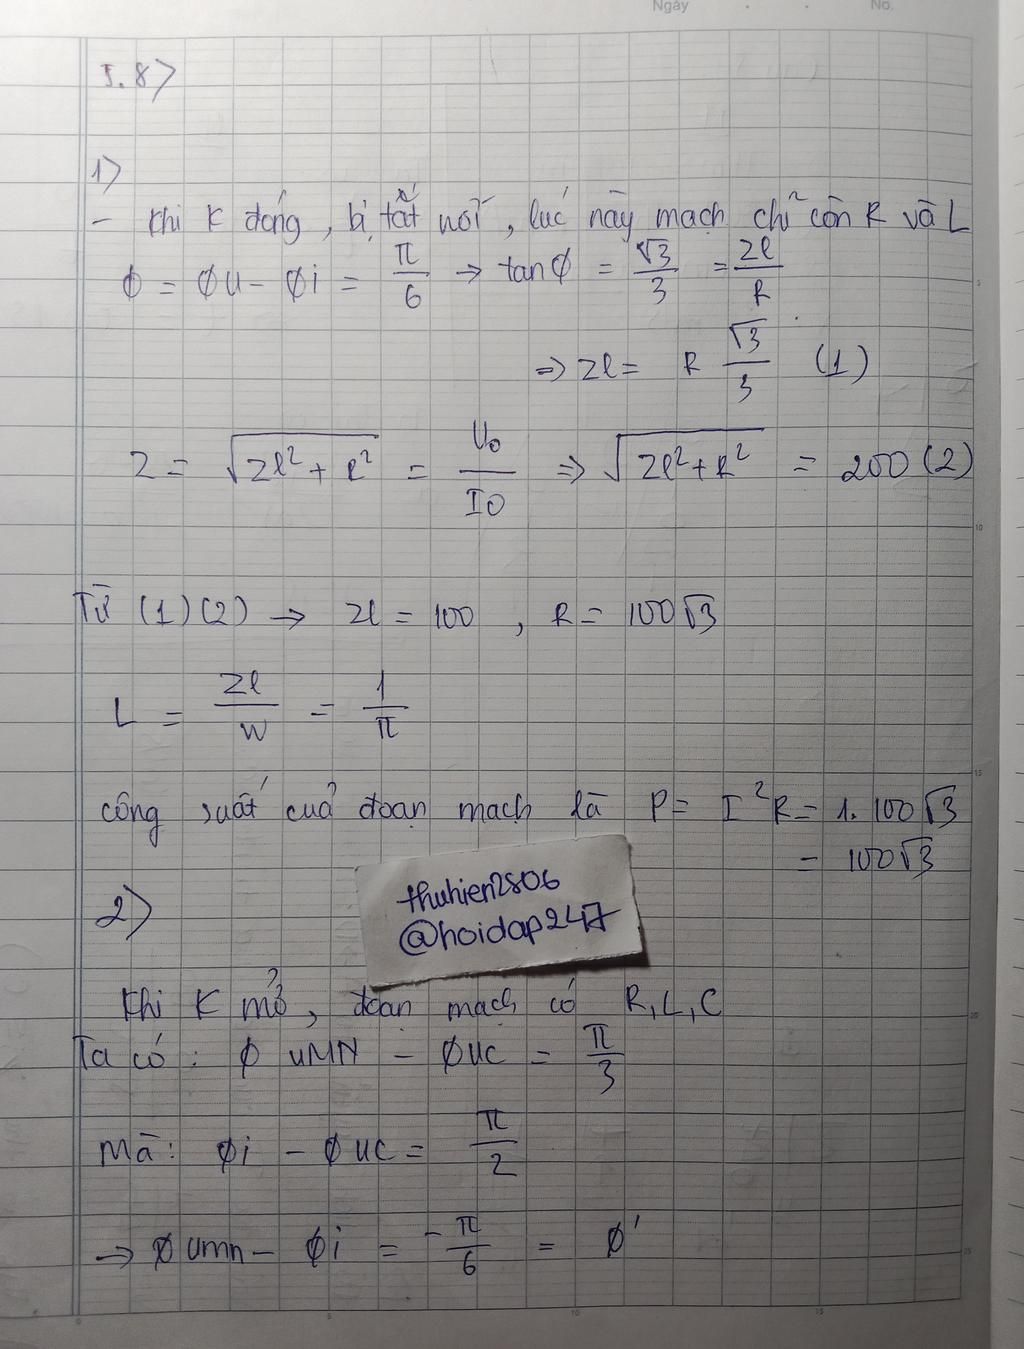 Ngày No.
I.8>
1>
- Khi K đóng, bị tắt nối, lúc này mạch chỉ còn R và L
ϕ = ϕu - ϕi = π/6 → tan ϕ = √3/3 = Zl/R
=> Zl = R √3/3 (1)
Z = √(Zl² + R²) = U₀/I0 => √(Zl² + R²) = 200 (2)
Từ (1)(2) → Zl = 100, R = 100√3
L = Zl/W = 1/π
công suất cuả đoạn mạch là P = I²R = 1.100√3
= 100√3
thuhien2806
@hoidap247
2>
Khi K mở, đoạn mạch có R,L,C
Ta có: ϕ uMN - ϕuc = π/3
Mà: ϕi - ϕuc = π/2
→ ϕ umn - ϕi = -π/6 = ϕ'